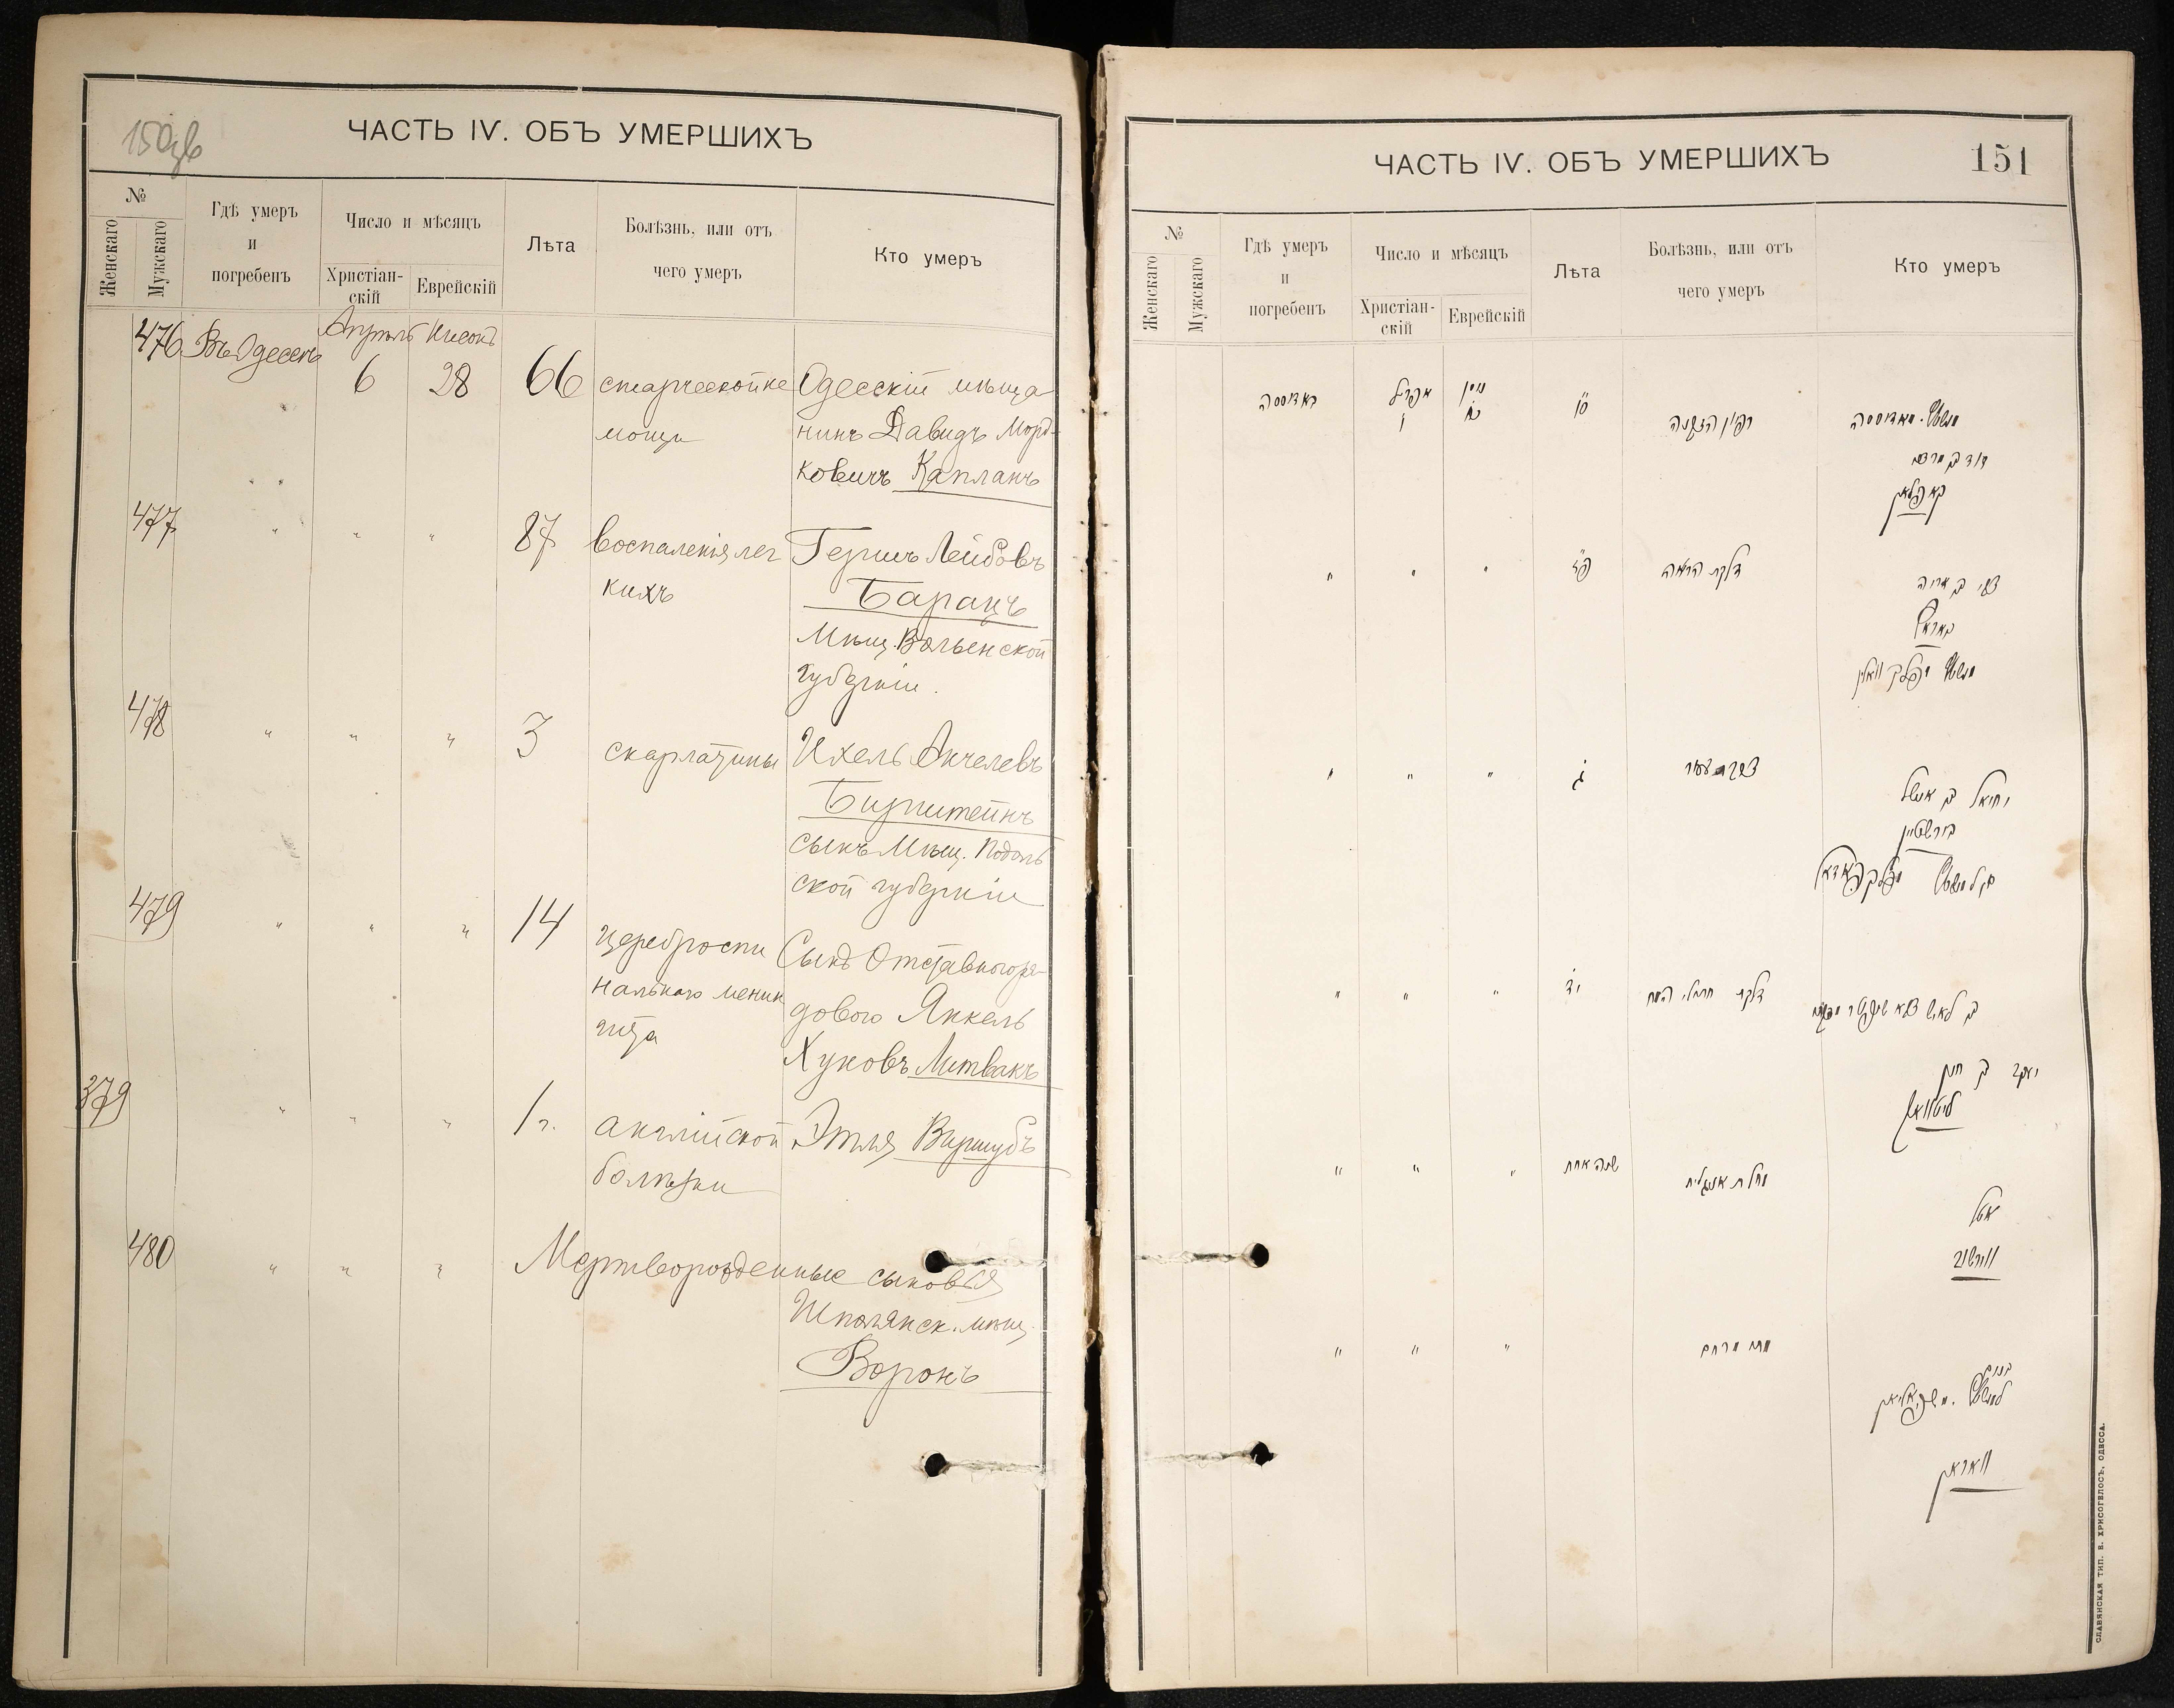 150об
ЧАСТЬ IV. ОБЪ УМЕРШИХЪ
№
Женскаго
Мужскаго
Гдѣ умеръ
и
погребенъ
Число и мѣсяцъ
Христіан-
скій
Еврейскій
Лѣта
Болѣзнь, или отъ
чего умеръ
Кто умеръ
476 Въ Одессѣ
Апрѣль
6
28
66
старческой не
мощи
Одесскій мѣща
нинъ Давидъ Морд-
ковичъ Капланъ
477 " " "
87
воспаленія лег
кихъ
Гершъ Лейбовъ
Баранъ
Мѣщ. Волынской
губерніи.
478 " " "
3
скарлатины
Ихель Анчелевъ
Бирштейнъ
сынъ Мѣщ. Подоль
ской губерніи
479 " " "
14
цереброспи
нальнаго менин
гита
Сынъ Отставного ря-
дового Янкель
Хуновъ Литвакъ
379 " " "
1 г.
англійской
болѣзни
Этля Виршубъ
480 " " "
Мертворожденные сыновья
Шполянск. мѣщ.
Воронъ
ЧАСТЬ IV. ОБЪ УМЕРШИХЪ
151
№
Женскаго
Мужскаго
Гдѣ умеръ
и
погребенъ
Число и мѣсяцъ
Христіан-
скій
Еврейскій
Лѣта
Болѣзнь, или отъ
чего умеръ
Кто умеръ
באדיססה
אפריל
ו
ניסן
כח
סו
רפיון הזקנה
מאדיססה
דוד ב מרדכי
קאפלאן
" " "
פז
דלקת הריאה
צבי ב אריה
וואלין
" " "
ג
יחיאל ב אנשל
בירשטיין
" " "
יד
דלקת
יעקב ב חנן
ליטוואק
" " "
שנה אחת
מחלת אנגלית
אטל
ווירשוב
" " "
בנים
וואראן
СЛАВЯНСКАЯ ТИП. В. ХРИСОГЕЛОСЪ, ОДЕССА.